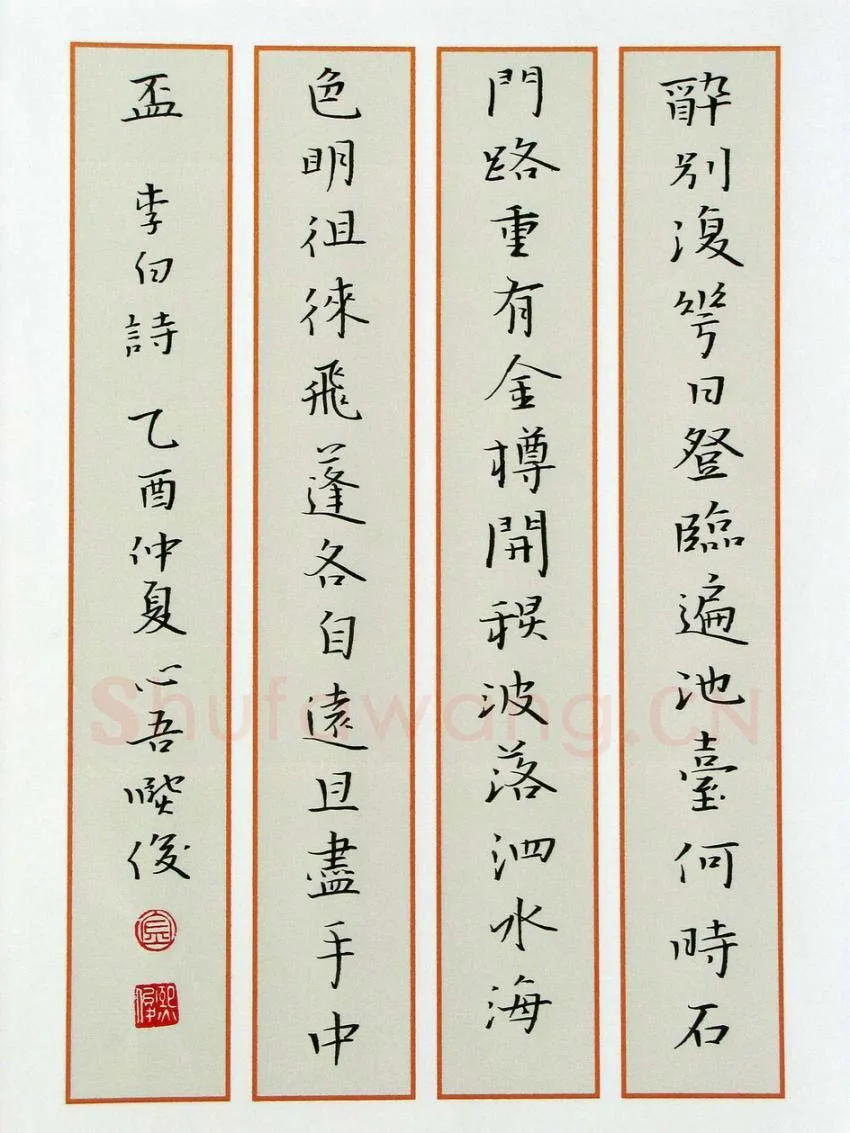 醉別復幾日登臨遍池臺何時石
門路重有金樽開秋波落泗水海
色明徂徠飛蓬各自遠且盡手中
盃 李白詩 乙酉仲夏心吾熙俊
Shufawang.CN